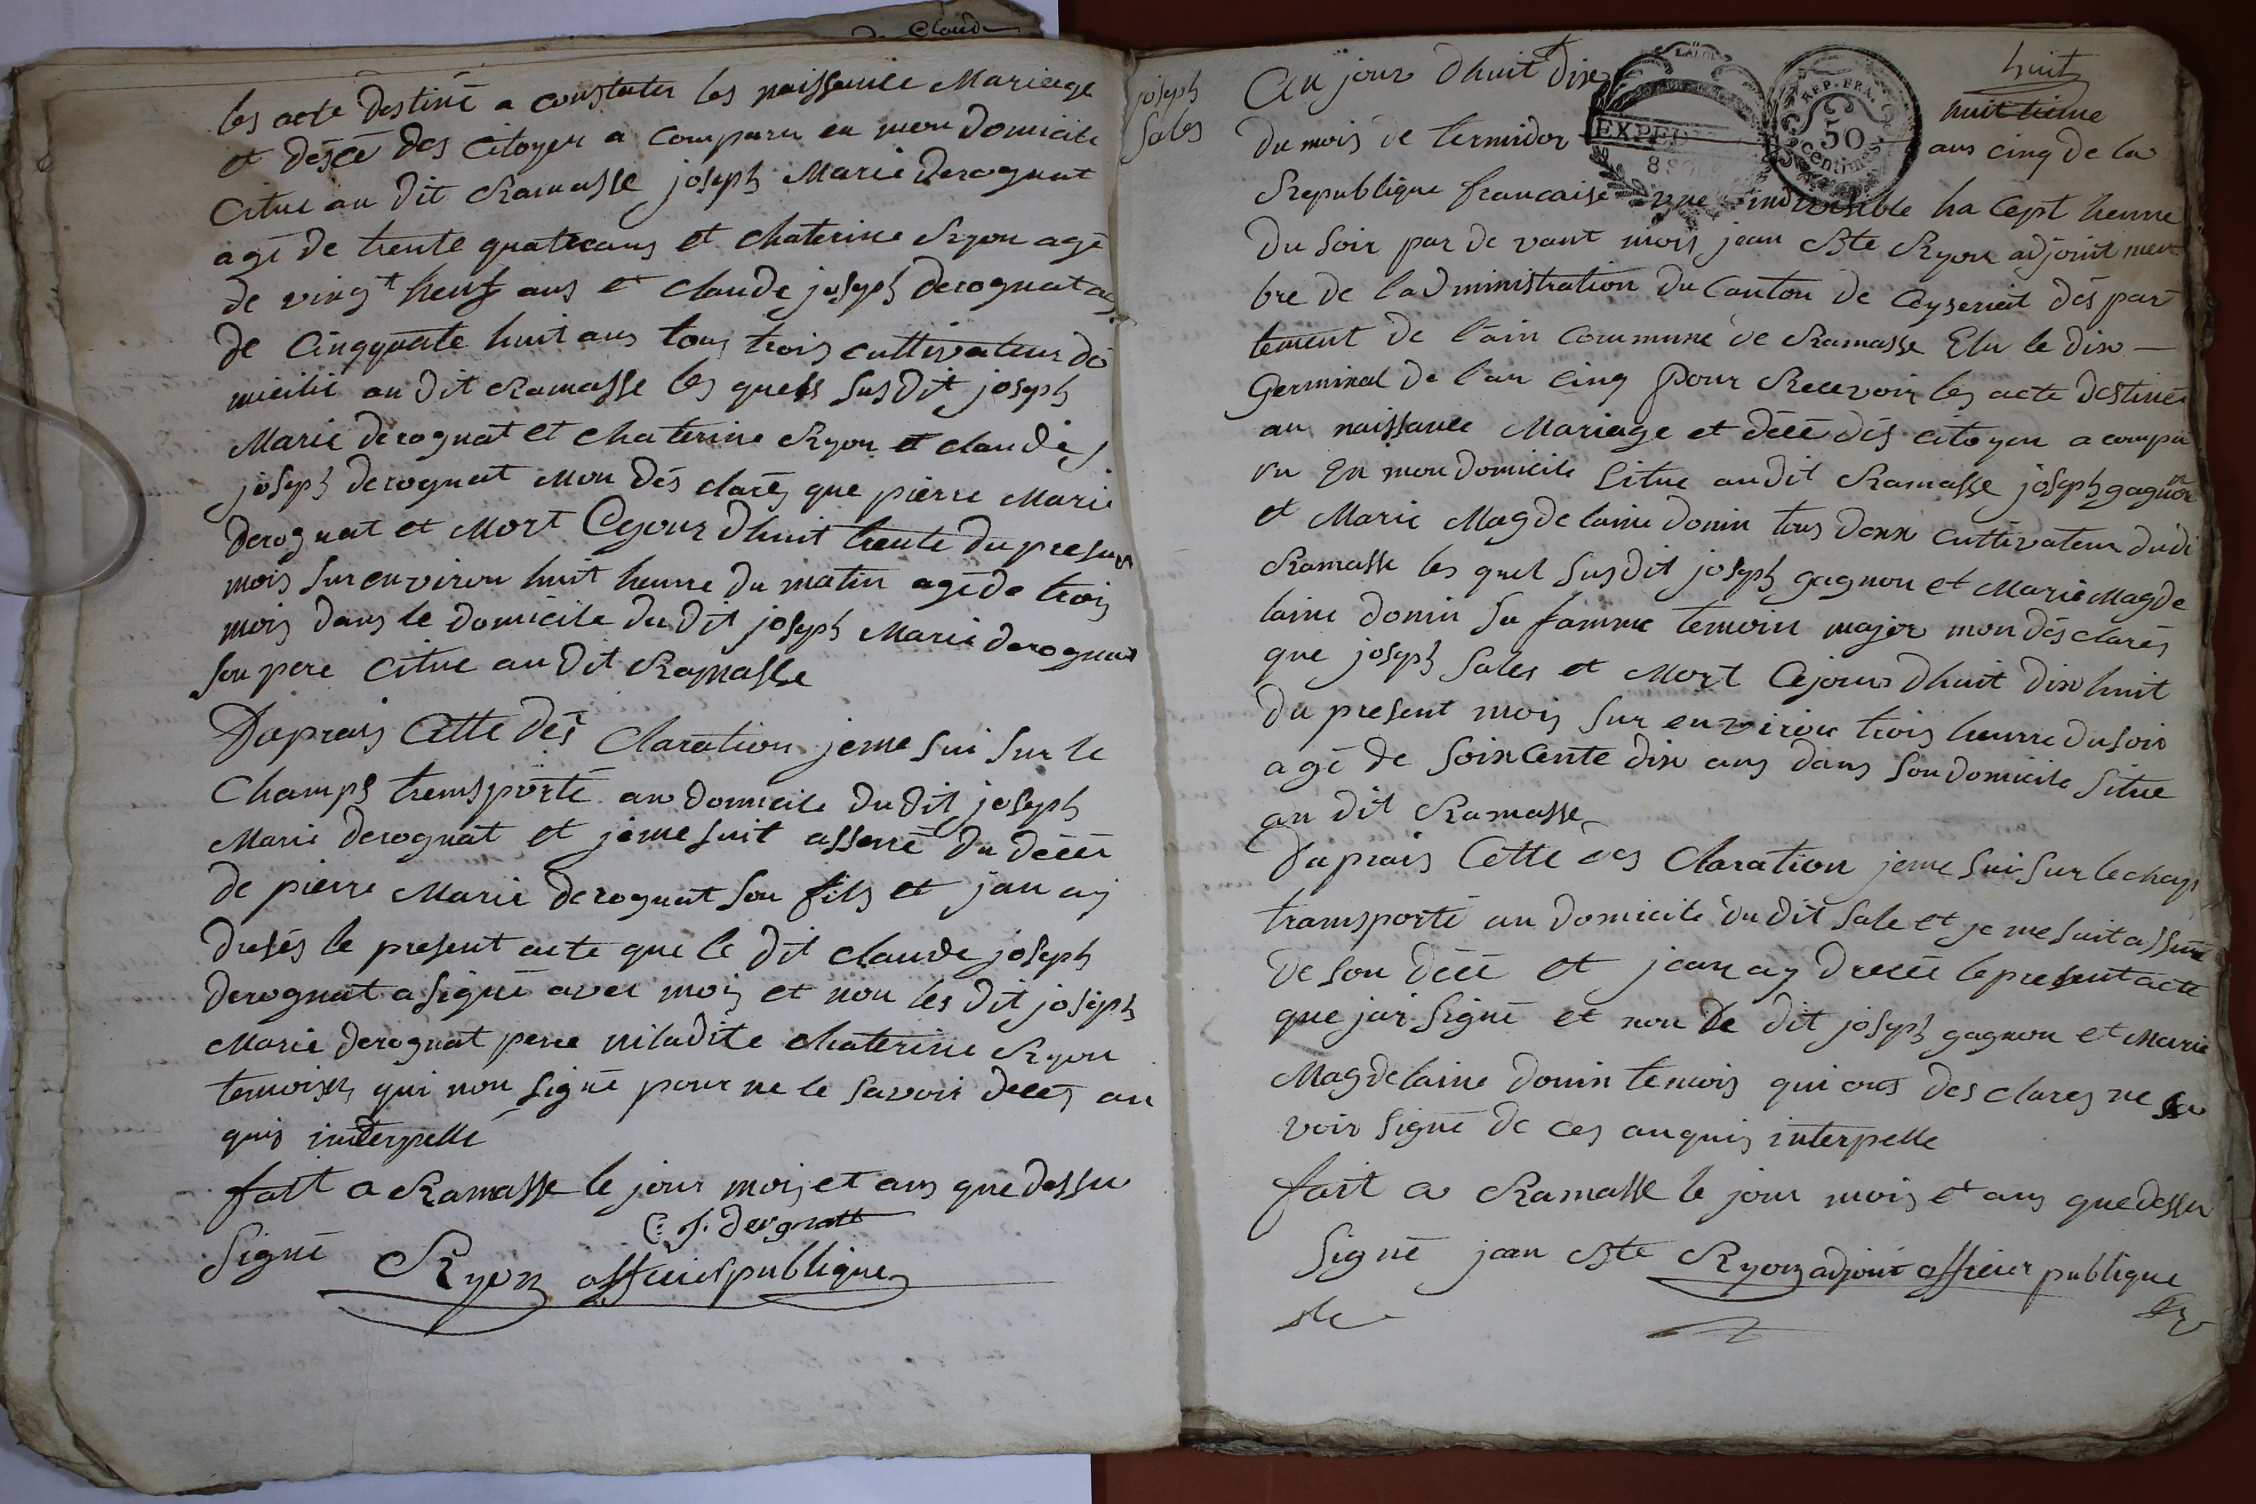 Claude
les acte destiné a constater les naissance Mariage
et décé des Citoyen a Comparu en mon domicile
Citue au dit Ramasse joseph Marie derognat
agé de trente quatre ans et Chaterine Ryon agé
de vingt neuf ans et Claude joseph derognat ag
de Cinqquate huit ans tous trois cultivateur do
micilié au dit Ramasse les quels susdit joseph
Marie derognat et Chaterine Ryon et claude
joseph derognat Mon dés clarés que pierre Marie
derognat et Mort Cejour dhuit trente du present
mois sur environ huit heurre du matin agé de trois
mois dans le domicile du dit joseph Marie derognat
son pere Citue au dit Ramasse
Daprais Cette dés Claration jeme sui sur le
Champs tremsporté au domicile du dit joseph
Marie derognat et jeme suit assurré du décér
de pierre Marie derognat son fils et jan ay
dresés le present acte que le dit claude joseph
derognat a signé avec moi et non les dit joseph
Marie derognat pere niladite Chaterine Ryon
temoisn qui non signé pour ne le savoir de ces an
quis interpellé
fait a Ramasse le jour mois et ans que dessu
C. J. derognatt
Signé Ryon officier publique
joseph
Sales
huit
huit tieme
Au jour dhuit dix
du mois de termidor ans cinq de la
LA LOI
EXPED
REP. FRA.
50
Centimes
Republique francaise une indivisible ha Cept heurre
du soir par de vant moi jean Bte Ryon adjoint mem
bre de ladministration du Canton de Ceyseriat dés par
tement de lain Commune de Ramasse Elu le dix
Germinal de lan Cinq pour Recevoir les acte destiné
au naissance Mariage et décé dés citoyen a compa
ru En mon domicile Situe audit Ramasse joseph gagnon
et Marie Magdelaine donin tous deux Cultivateur dudi
Ramasse les quel susdit joseph gagnon et Marie Magde
laine donin sa famme temoin major mon dés clarés
que joseph Sales et Mort Cejour dhuit dix huit
du present mois sur environ trois heurre du soir
agé de Soixcente dix ans dans son domicile Situe
au dit Ramasse
Daprais Cette des Claration jeme sui sur le chap
transporté au domicile du dit Sale et je me suit assuré
de son décé et jean ay drecér le present acte
que jai Signé et non de dit joseph gagnon et Marie
Magdelaine donin temois qui ons des clares ne sa
voir signé de ces anquis interpelle
fait a Ramasse le jour mois et ans que dessu
Signé jean Bte Ryon adjoint officier publique